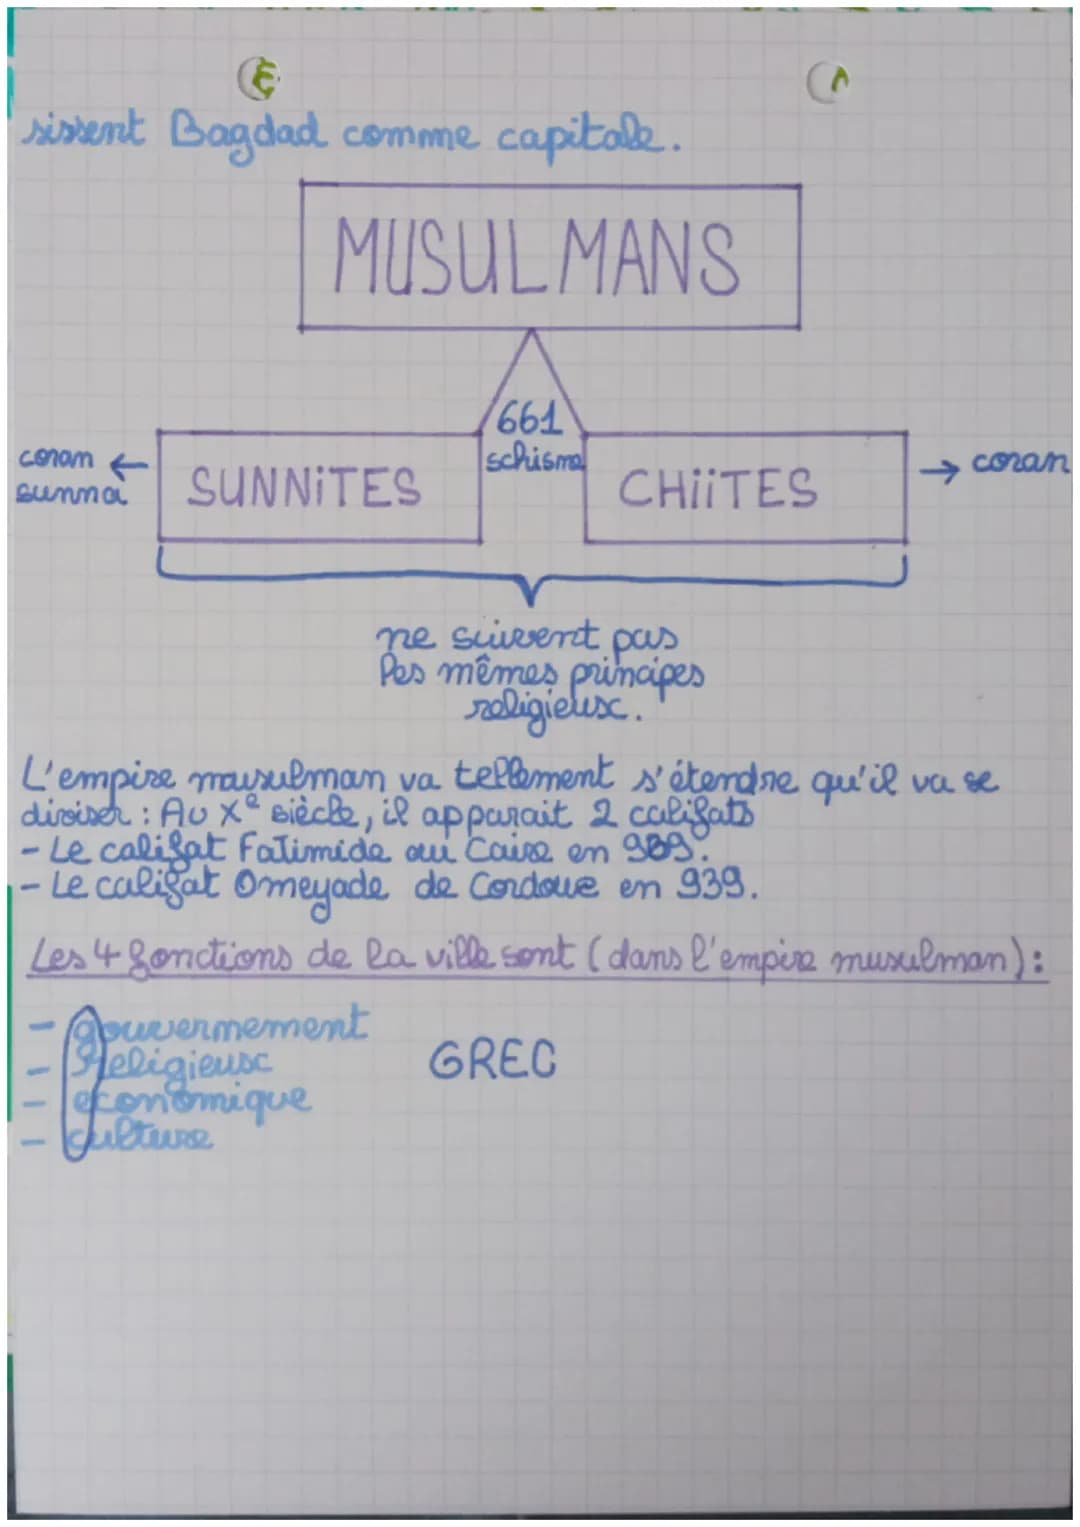 sissent Bagdad comme capitale.
MUSULMANS
661
schisme
coran
sunna
SUNNiTES
CHiiTES
coran
ne suivent pas
les mêmes principes
religieux.
L'empire musulman va tellement s'étendre qu'il va se
diviser : Au Xe siècle, il apparait 2 califats
- Le califat Fatimide au Caire en 909.
- Le califat Omeyade de Cordoue en 939.
Les 4 fonctions de la ville sont (dans l'empire musulman) :
- gouvernement
- religieux
- economique
- culture
GREC